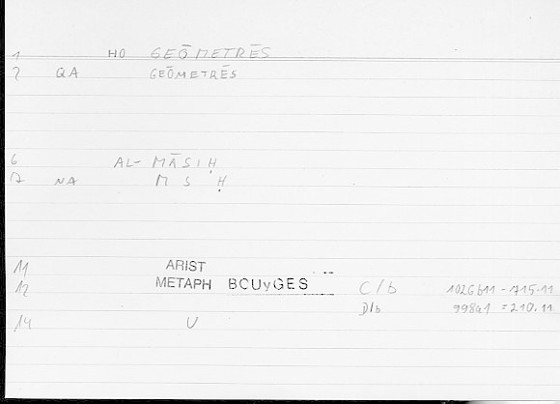 1 HO GEŌMETRĒS
2 QA GEŌMETRĒS
6 AL- MĀSIḤ
7 NA M S Ḥ
11 ARIST
12 METAPH BOUyGES C/b 1026b11 - 715.11
D/b 998a1 = 210.11
14 U